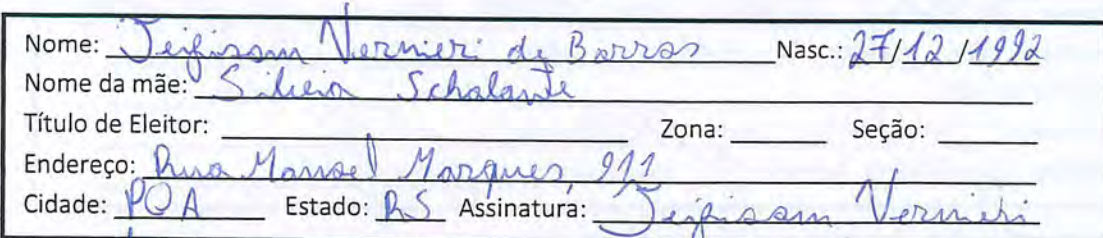 Nome: Jeifisom Vernieri de Barros Nasc.: 27/12/1992
Nome da mãe: Silvia Scholante
Título de Eleitor: Zona: Seção:
Endereço: Rua Manoel Marques, 911
Cidade: POA Estado: RS Assinatura: Jeifisom Vernieri